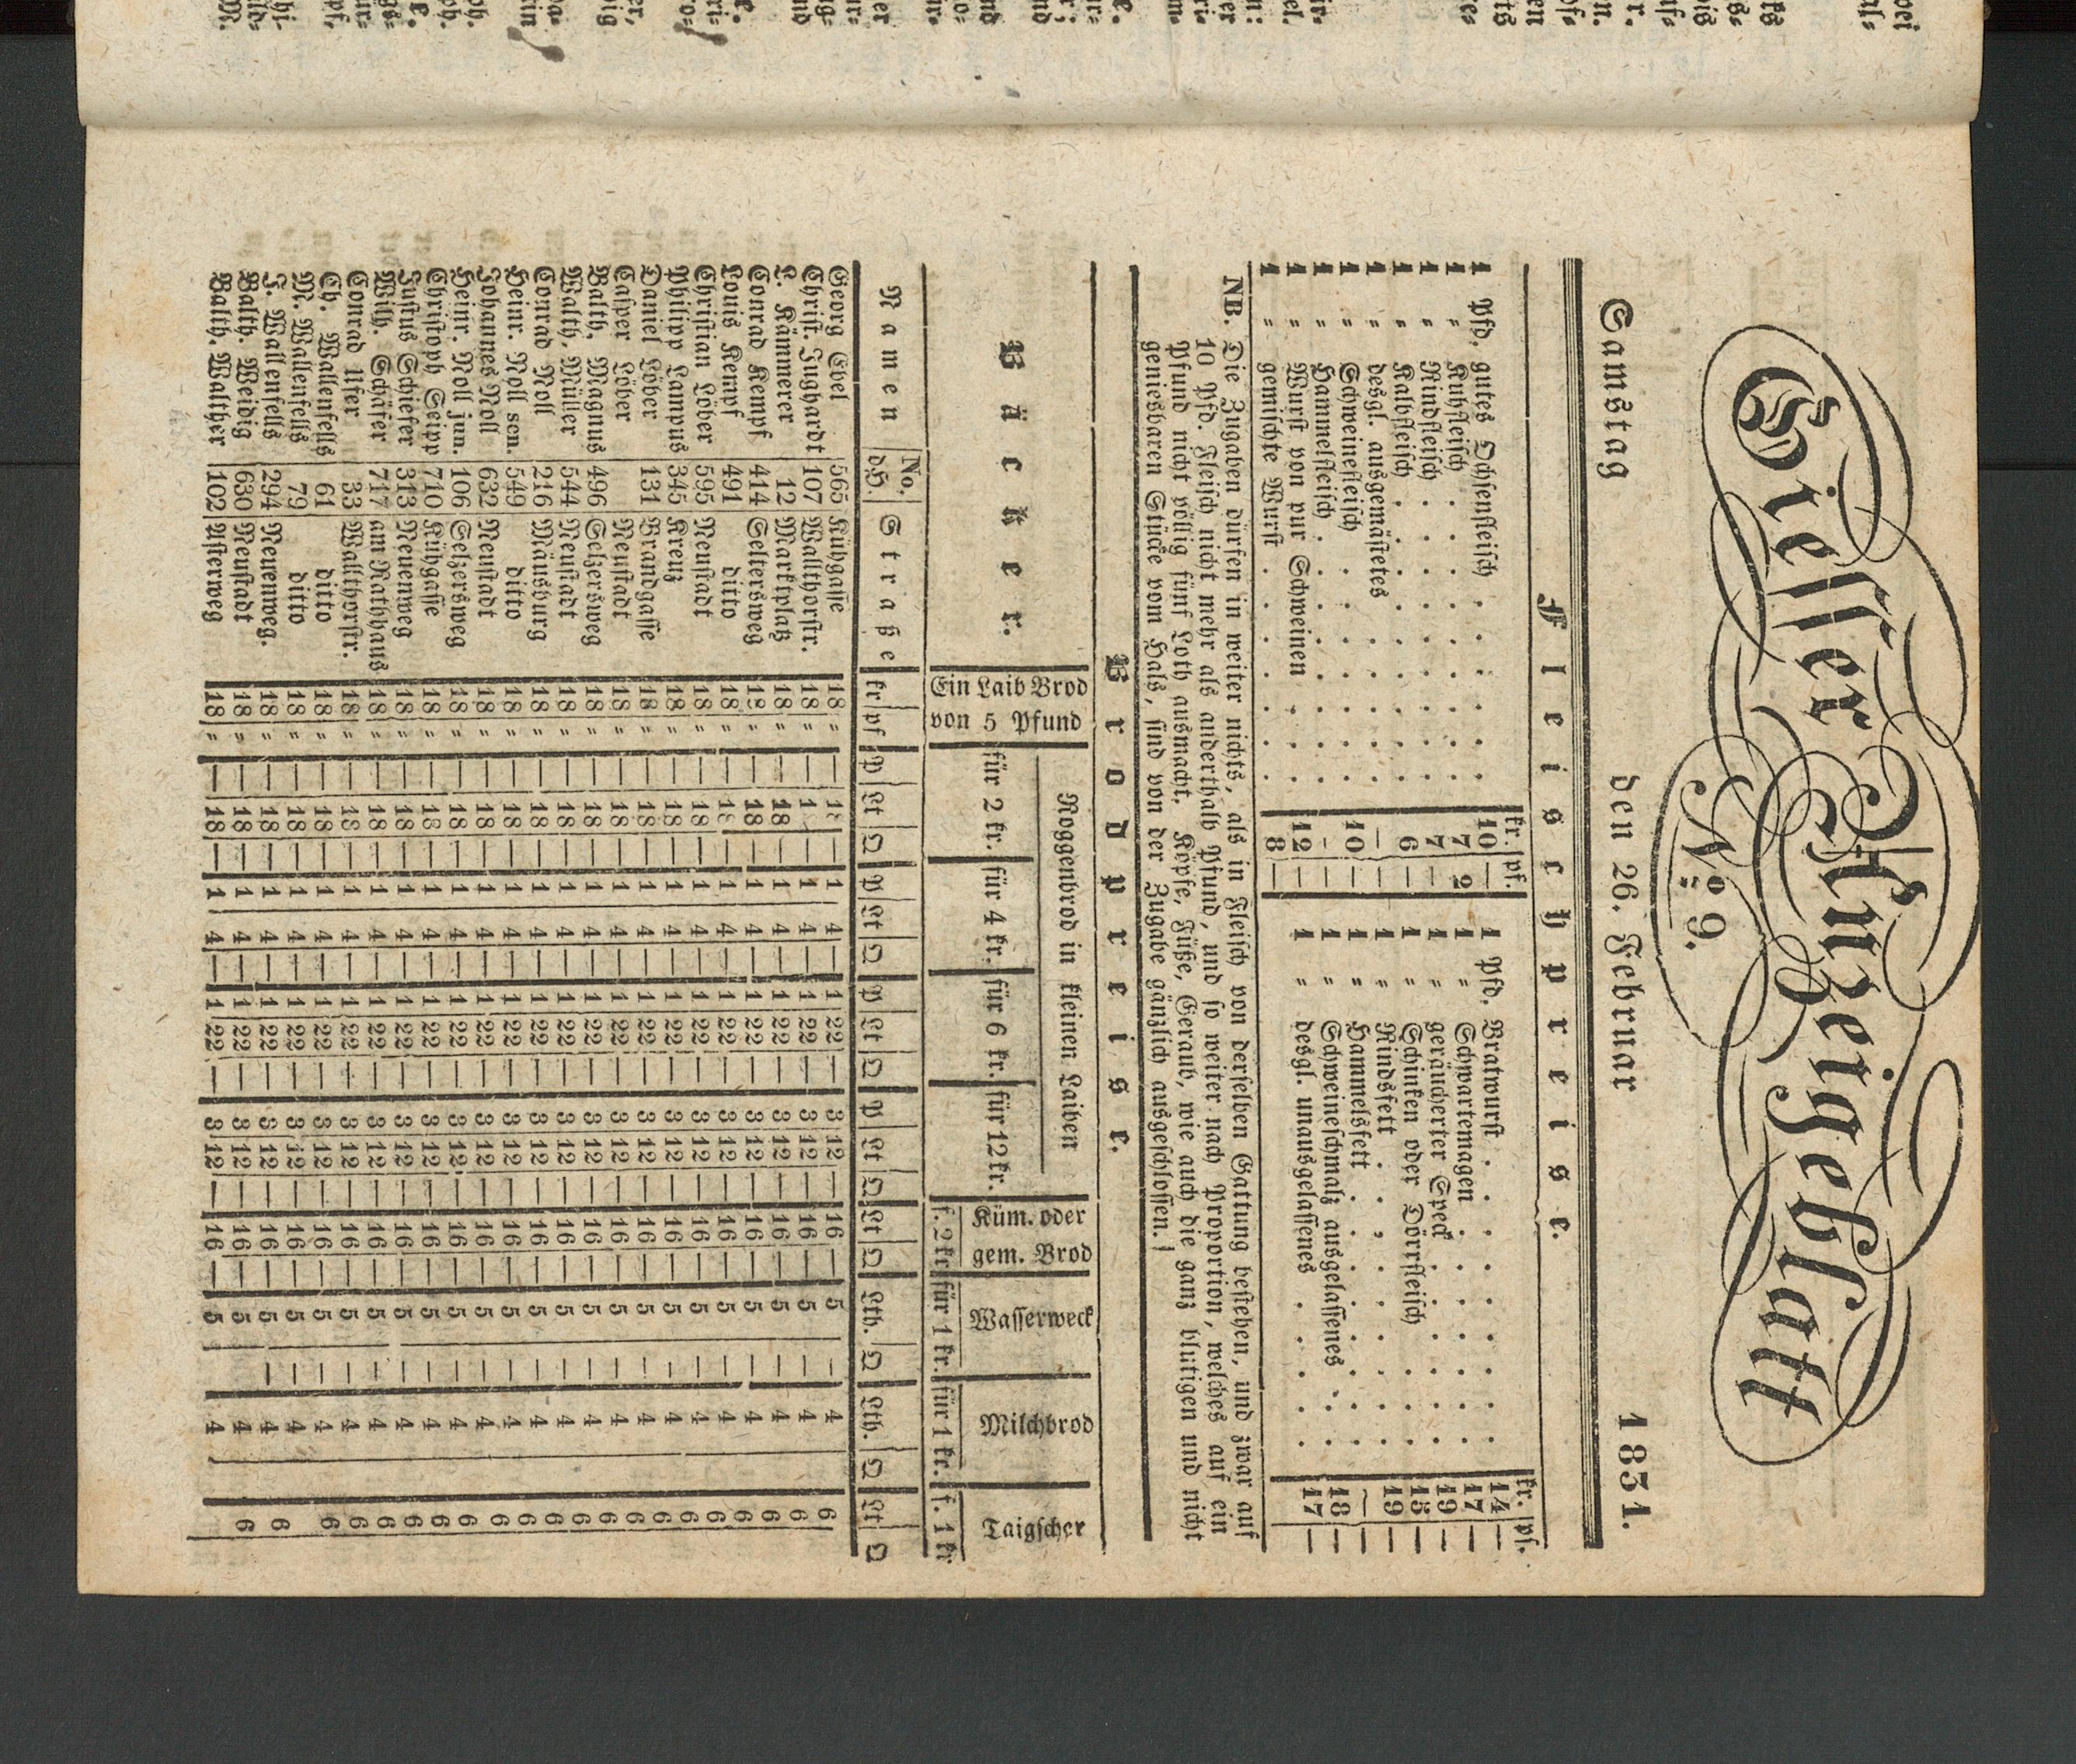 Giesser Anzeigeblatt
No 9.
Samstag den 26. Februar 1831.
Fleischpreise.
kr. pf. kr. pf.
1 Pfd. gutes Ochsenfleisch 10 — 1 Pfd. Bratwurst 14 —
1 " Kuhfleisch 7 2 1 " Schwartemagen 17 —
1 " Rindfleisch 7 — 1 " geräucherter Speck 19 —
1 " Kalbfleisch 6 — 1 " Schinken oder Dörrfleisch 15 —
1 " desgl. ausgemästetes — — 1 " Rindsfett 19 —
1 " Schweinefleisch 10 — 1 " Hammelsfett — —
1 " Hammelfleisch — — 1 " Schweineschmalz ausgelassenes 18 —
1 " Wurst von pur Schweinen 12 — 1 " desgl. unausgelassenes 17 —
1 " gemischte Wurst 8 —
NB. Die Zugaben dürfen in weiter nichts, als in Fleisch von derselben Gattung bestehen, und zwar auf
10 Pfd. Fleisch nicht mehr als anderthalb Pfund, und so weiter nach Proportion, welches auf ein
Pfund nicht völlig fünf Loth ausmacht. Köpfe, Füße, Geraub, wie auch die ganz blutigen und nicht
geniesbaren Stücke vom Hals, sind von der Zugabe gänzlich ausgeschlossen.
Brodpreise.
Bäcker. Ein Laib Brod von 5 Pfund Roggenbrod in kleinen Laiben Küm. oder gem. Brod Wasserweck Milchbrod Taigscher
für 2 kr. für 4 kr. für 6 kr. für 12 kr. f. 2 kr für 1 kr. für 1 kr. f. 1 kr
Namen No. d.H. Straße kr pf P Lt Q P Lt Q P Lt Q P Lt Q Lt Q Lth. Q Lth. Q Lt Q
Georg Ebel 565 Kühgasse 18 " — 18 — 1 4 — 1 22 — 3 12 — 16 — 5 — 4 6
Christ. Jughardt 107 Wallthorstr. 18 " — 18 — 1 4 — 1 22 — 3 12 — 16 — 5 — 4 6
L. Kämmerer 12 Marktplatz 18 " — 18 — 1 4 — 1 22 — 3 12 — 16 — 5 — 4 6
Conrad Kempf 414 Seltersweg 18 " — 18 — 1 4 — 1 22 — 3 12 — 16 — 5 — 4 6
Louis Kempf 491 ditto 18 " — 18 — 1 4 — 1 22 — 3 12 — 16 — 5 — 4 6
Christian Löber 595 Neustadt 18 " — 18 — 1 4 — 1 22 — 3 12 — 16 — 5 — 4 6
Philipp Lampus 345 Kreuz 18 " — 18 — 1 4 — 1 22 — 3 12 — 16 — 5 — 4 6
Daniel Löber 131 Brandgasse 18 " — 18 — 1 4 — 1 22 — 3 12 — 16 — 5 — 4 6
Casper Löber Neustadt 18 " — 18 — 1 4 — 1 22 — 3 12 — 16 — 5 — 4 6
Balth. Magnus 496 Selzersweg 18 " — 18 — 1 4 — 1 22 — 3 12 — 16 — 5 — 4 6
Balth. Müller 544 Neustadt 18 " — 18 — 1 4 — 1 22 — 3 12 — 16 — 5 — 4 6
Conrad Noll 216 Mäusburg 18 " — 18 — 1 4 — 1 22 — 3 12 — 16 — 5 — 4 6
Heinr. Noll sen. 549 ditto 18 " — 18 — 1 4 — 1 22 — 3 12 — 16 — 5 — 4 6
Johannes Noll 632 Neustadt 18 " — 18 — 1 4 — 1 22 — 3 12 — 16 — 5 — 4 6
Heinr. Noll jun. 106 Selzersweg 18 " — 18 — 1 4 — 1 22 — 3 12 — 16 — 5 — 4 6
Christoph Seipp 710 Kühgasse 18 " — 18 — 1 4 — 1 22 — 3 12 — 16 — 5 — 4 6
Justus Schiefer 313 Neuenweg 18 " — 18 — 1 4 — 1 22 — 3 12 — 16 — 5 — 4 6
Wilh. Schäfer 717 am Rathhaus 18 " — 18 — 1 4 — 1 22 — 3 12 — 16 — 5 — 4 6
Conrad Ufer 33 Wallthorstr. 18 " — 18 — 1 4 — 1 22 — 3 12 — 16 — 5 — 4 6
Ch. Wallenfells 61 ditto 18 " — 18 — 1 4 — 1 22 — 3 12 — 16 — 5 — 4 6
M. Wallenfells 79 ditto 18 " — 18 — 1 4 — 1 22 — 3 12 — 16 — 5 — 4
J. Wallenfells 294 Neuenweg. 18 " — 18 — 1 4 — 1 22 — 3 12 — 16 — 5 — 4 6
Balth. Weidig 630 Neustadt 18 " — 18 — 1 4 — 1 22 — 3 12 — 16 — 5 4 6
Balth. Walther 102 Asterweg 18 " — 18 — 1 4 — 1 22 — 3 12 — 16 — 5 4